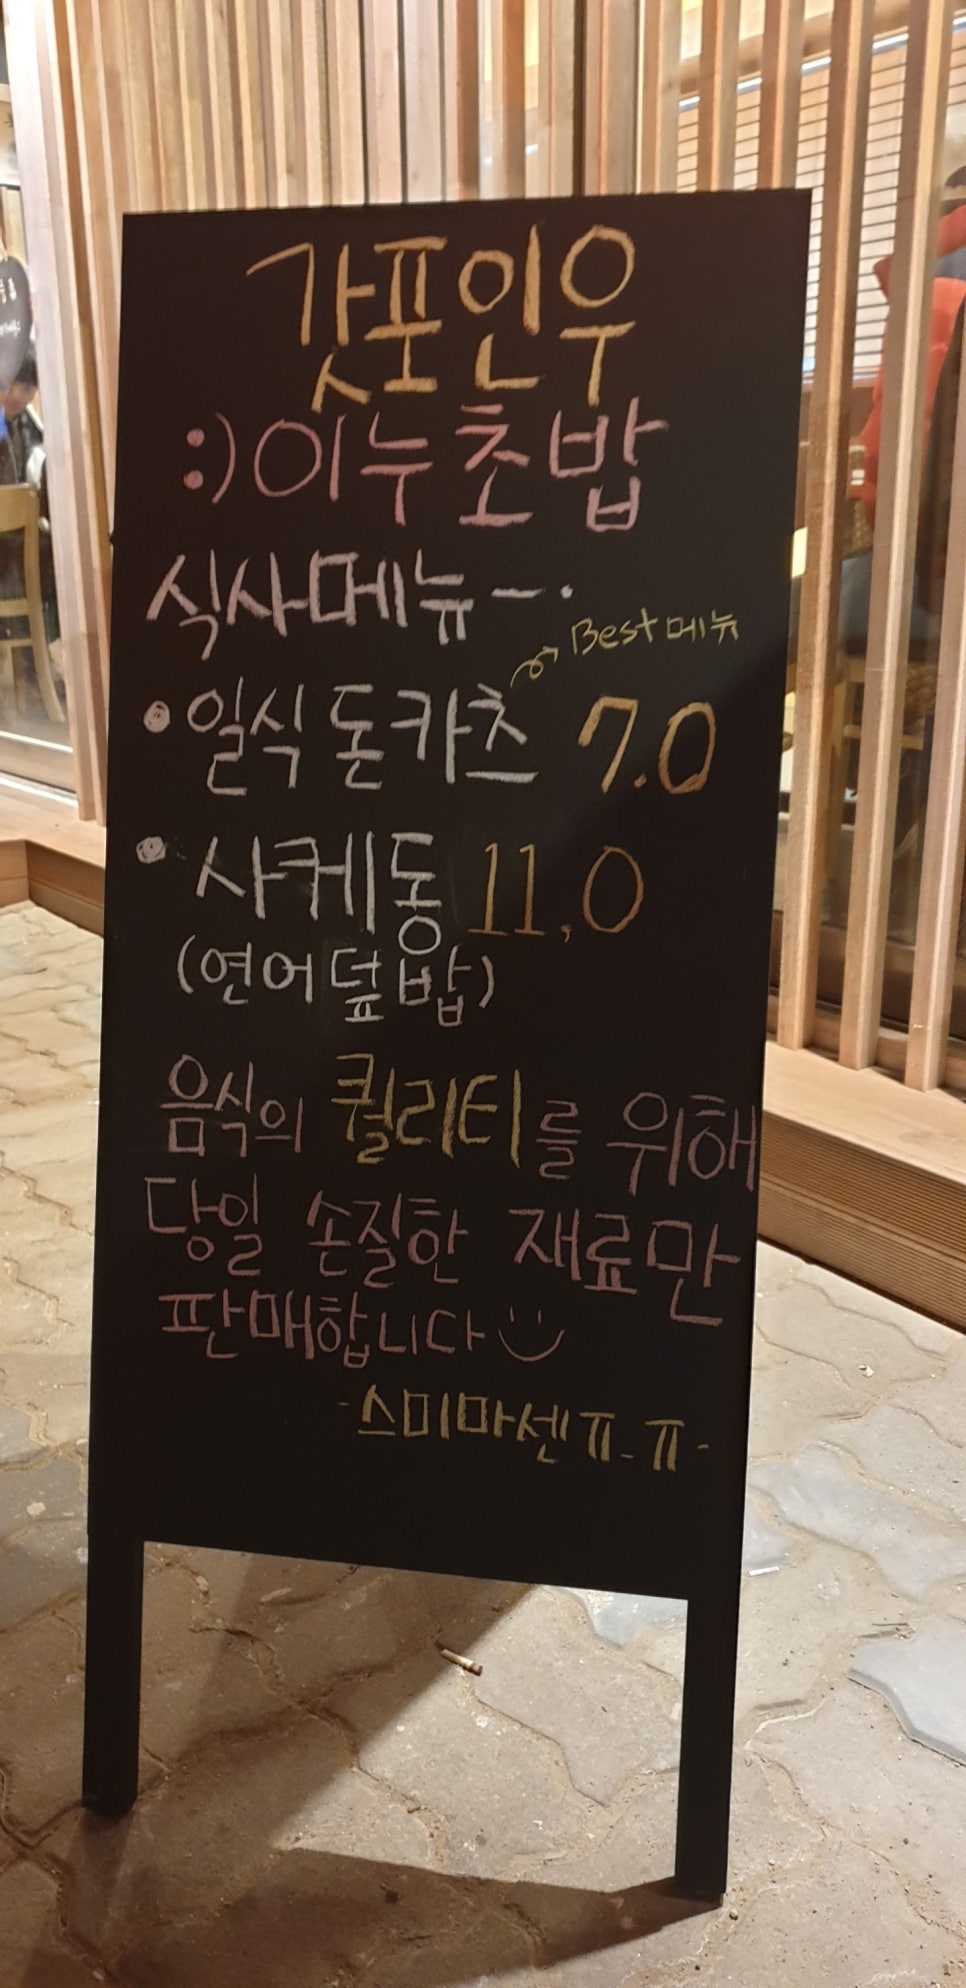 갓포인우
:)이누초밥
식사메뉴-.
Best메뉴
•일식돈카츠 7.0
•사케동 11,0
(연어덮밥)
음식의 퀄리티를 위해
당일 손질한 재료만
판매합니다
-스미마센ㅠ_ㅠ-